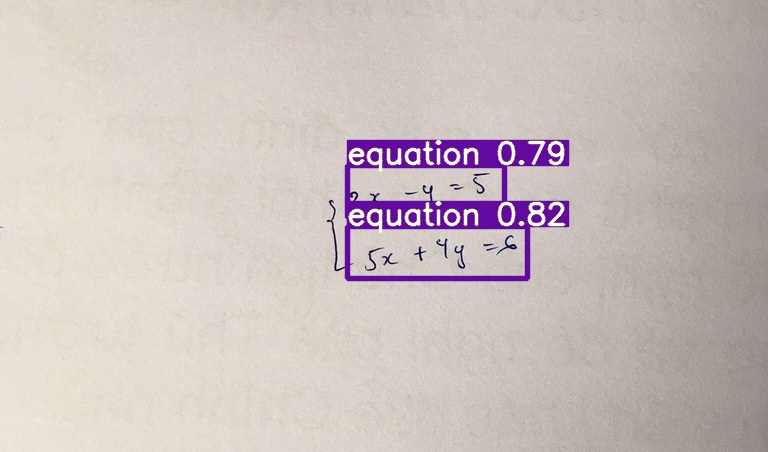 equation 0.79
x - y = 5
equation 0.82
5x + 4y = 6